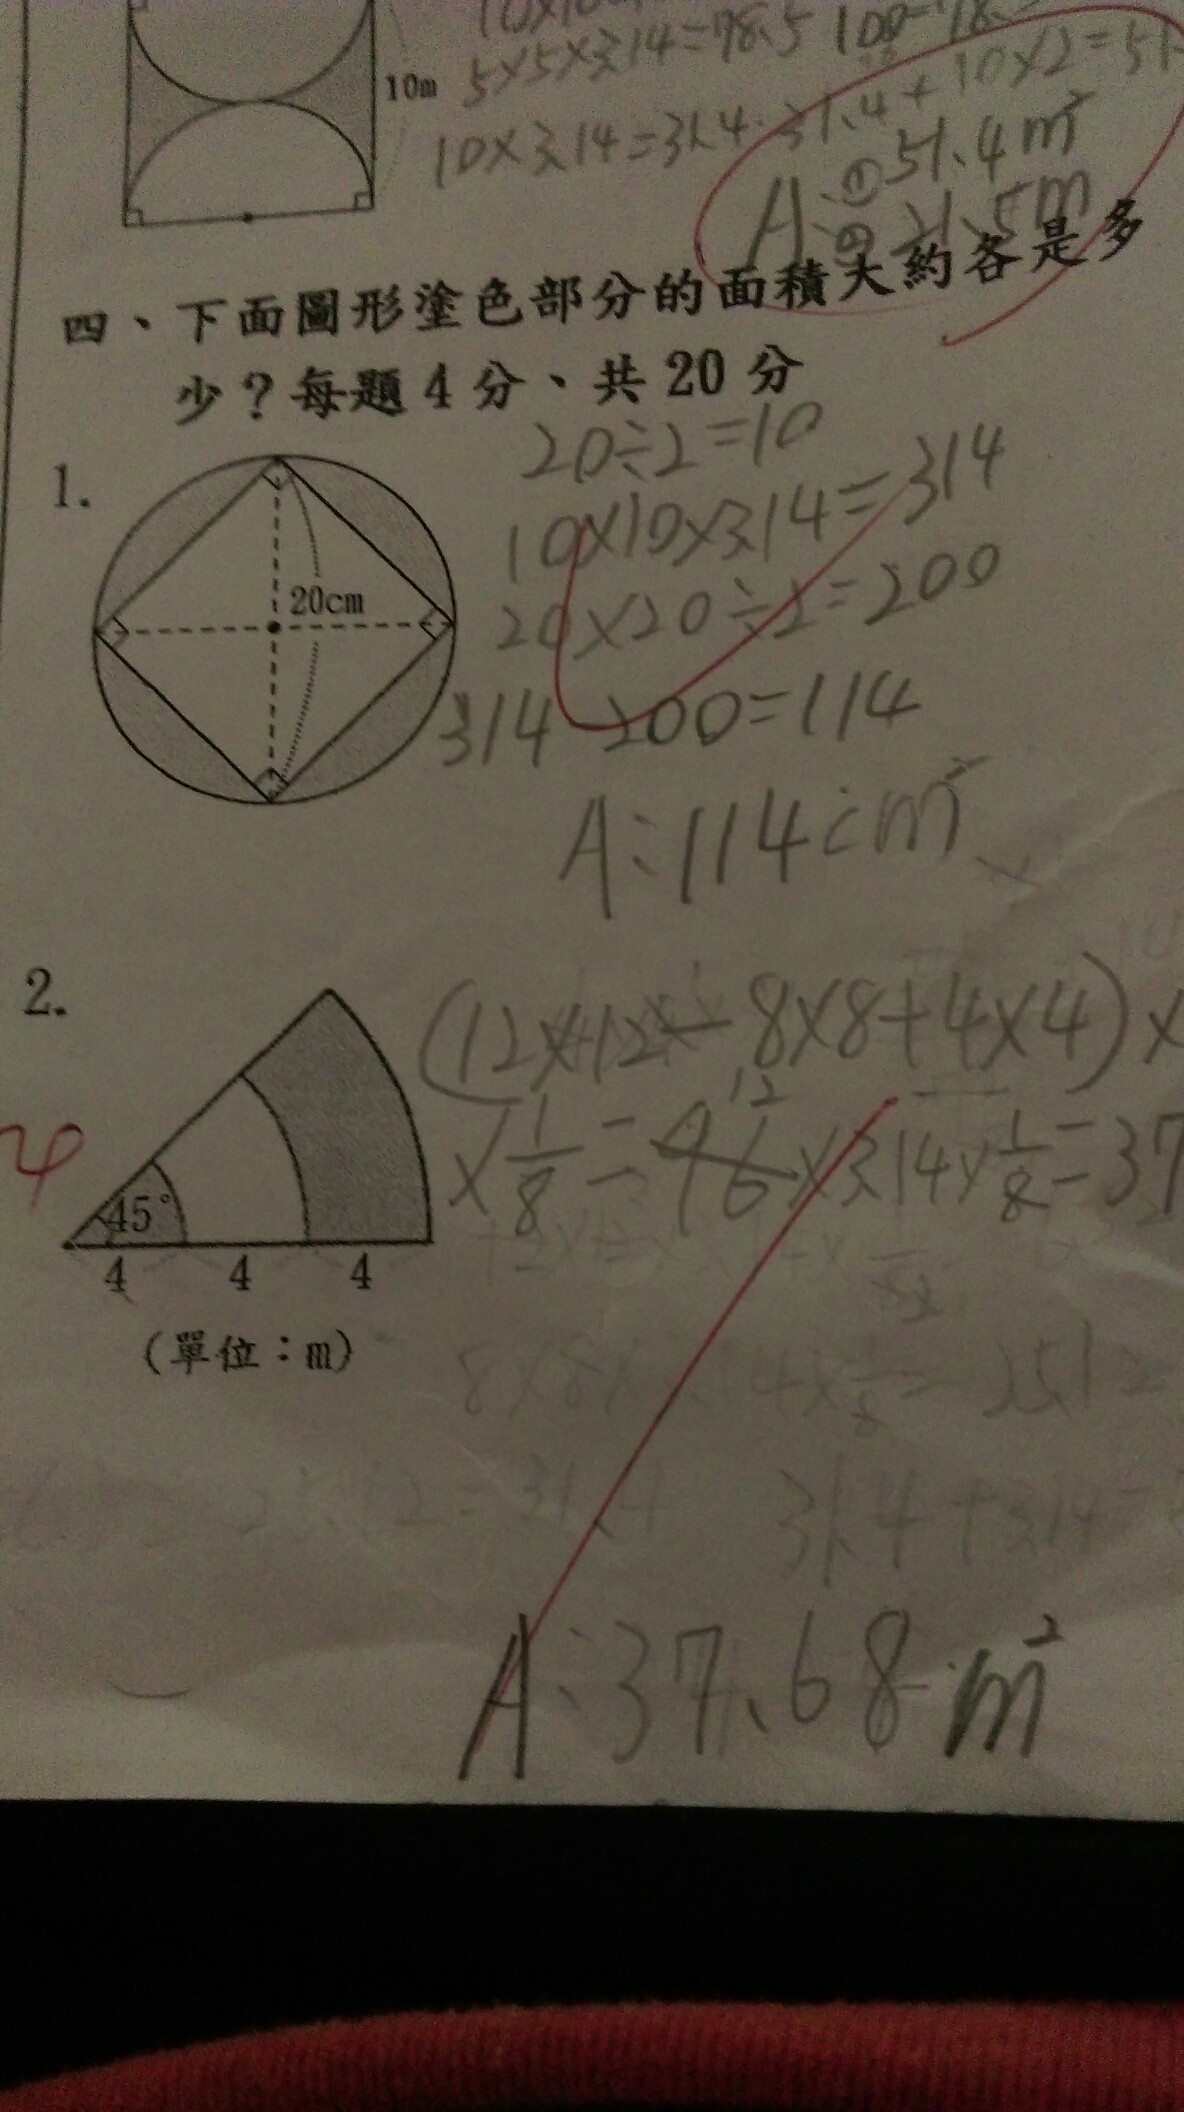 5×5×3.14=78.5
10m
10×3.14=31.4
31.4+10×2=51
A:①51.4m²
②21.5m
四、下面圖形塗色部分的面積大約各是多
少？每題4分、共20分
1.
20cm
20÷2=10
10×10×3.14=314
20×20÷2=200
314-200=114
A:114cm²
2.
45°
4
4
4
(單位：m)
(12×12-8×8+4×4)×
×1/8=96×3.14×1/8=37
12
4
A:37.68m²